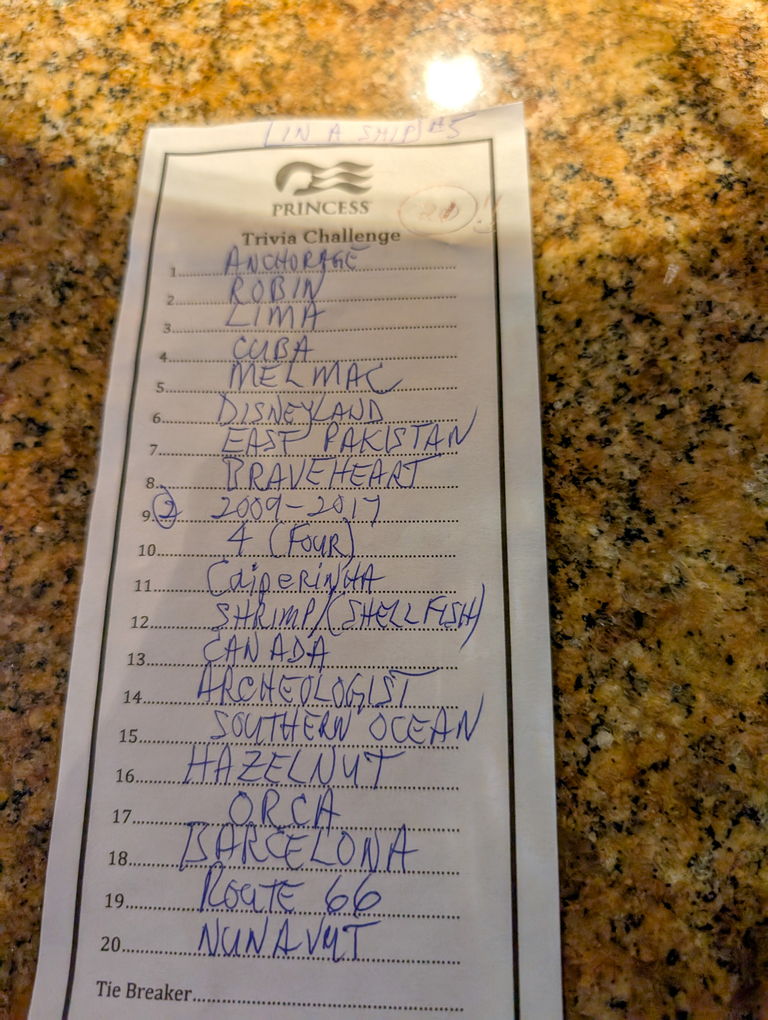 (IN A SHIP) #5
PRINCESS
21!!
Trivia Challenge
1. ANCHORAGE
2. ROBIN
3. LIMA
4. CUBA
5. MELMAC
6. DISNEYLAND
7. EAST PAKISTAN
8. BRAVEHEART
9. 2 2009-2017
10. 4 (FOUR)
11. CAIPERINHA
12. SHRIMP/(SHELLFISH)
13. CANADA
14. ARCHEOLOGIST
15. SOUTHERN OCEAN
16. HAZELNUT
17. ORCA
18. BARCELONA
19. ROUTE 66
20. NUNAVUT
Tie Breaker